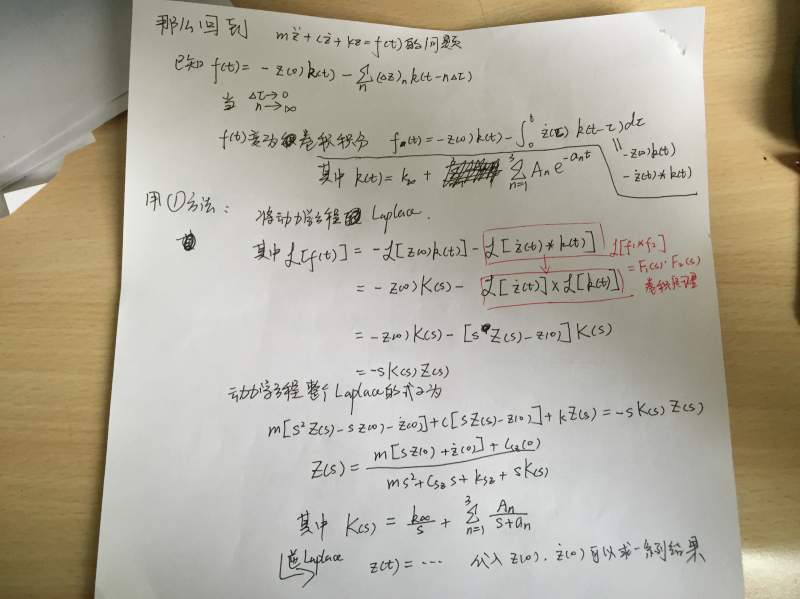 那么回到 mz̈+cż+kz=f(t)的问题
已知 f(t)= -z(0)k(t) - ∑n (Δż)n k(t-nΔτ)
当 Δτ→0 n→∞
f(t)变为卷积积分 f(t)=-z(0)k(t)-∫₀ᵗ ż(τ) k(t-τ)dτ
其中 k(t)= k∞ + ∑n=1³ An e^(-ant)
|| -z(0)k(t)
-ż(t)*k(t)
用①方法: 将动力学方程 Laplace.
其中 ℒ[f(t)] = -ℒ[z(0)k(t)] - ℒ[ż(t)*k(t)] ℒ[f₁*f₂]
= -z(0)K(s) - ℒ[ż(t)]×ℒ[k(t)] =F₁(s)·F₂(s)
卷积定理
= -z(0)K(s) - [sZ(s)-z(0)]K(s)
= -sK(s)Z(s)
动力学方程整个Laplace的式子为
m[s²Z(s)-sz(0)-ż(0)]+c[sZ(s)-z(0)]+kZ(s)=-sK(s)Z(s)
Z(s)= (m[sz(0)+ż(0)]+csz(0)) / (ms²+csz s+ksz+sK(s))
其中 K(s) = k∞/s + ∑n=1³ An/(s+an)
逆Laplace z(t)=⋯ 代入 z(0)、ż(0)可以求一系列结果